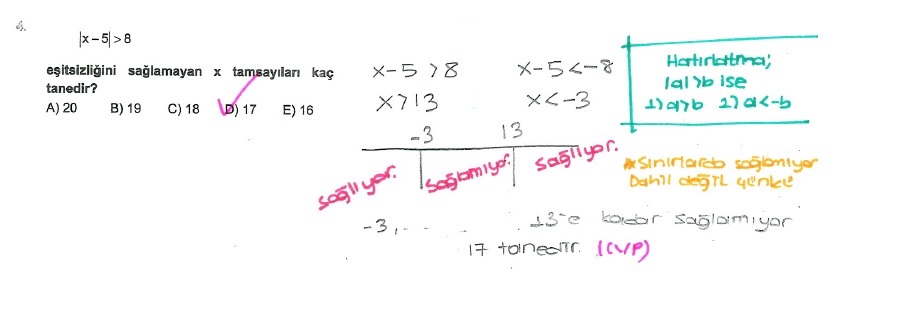 4.
|x – 5| > 8
eşitsizliğini sağlamayan x tamsayıları kaç
tanedir?
A) 20 B) 19 C) 18 D) 17 E) 16
x-5 >8 x-5<-8
x>13 x<-3
-3 13
sağlıyor. sağlamıyor. sağlıyor.
-3, . . . 13-e kadar sağlamıyor
17 tanedir. (CVP)
Hatırlatma;
|a|>b ise
1) a>b 2) a<-b
*Sınırlarda sağlamıyor
Dahil değil çünkü